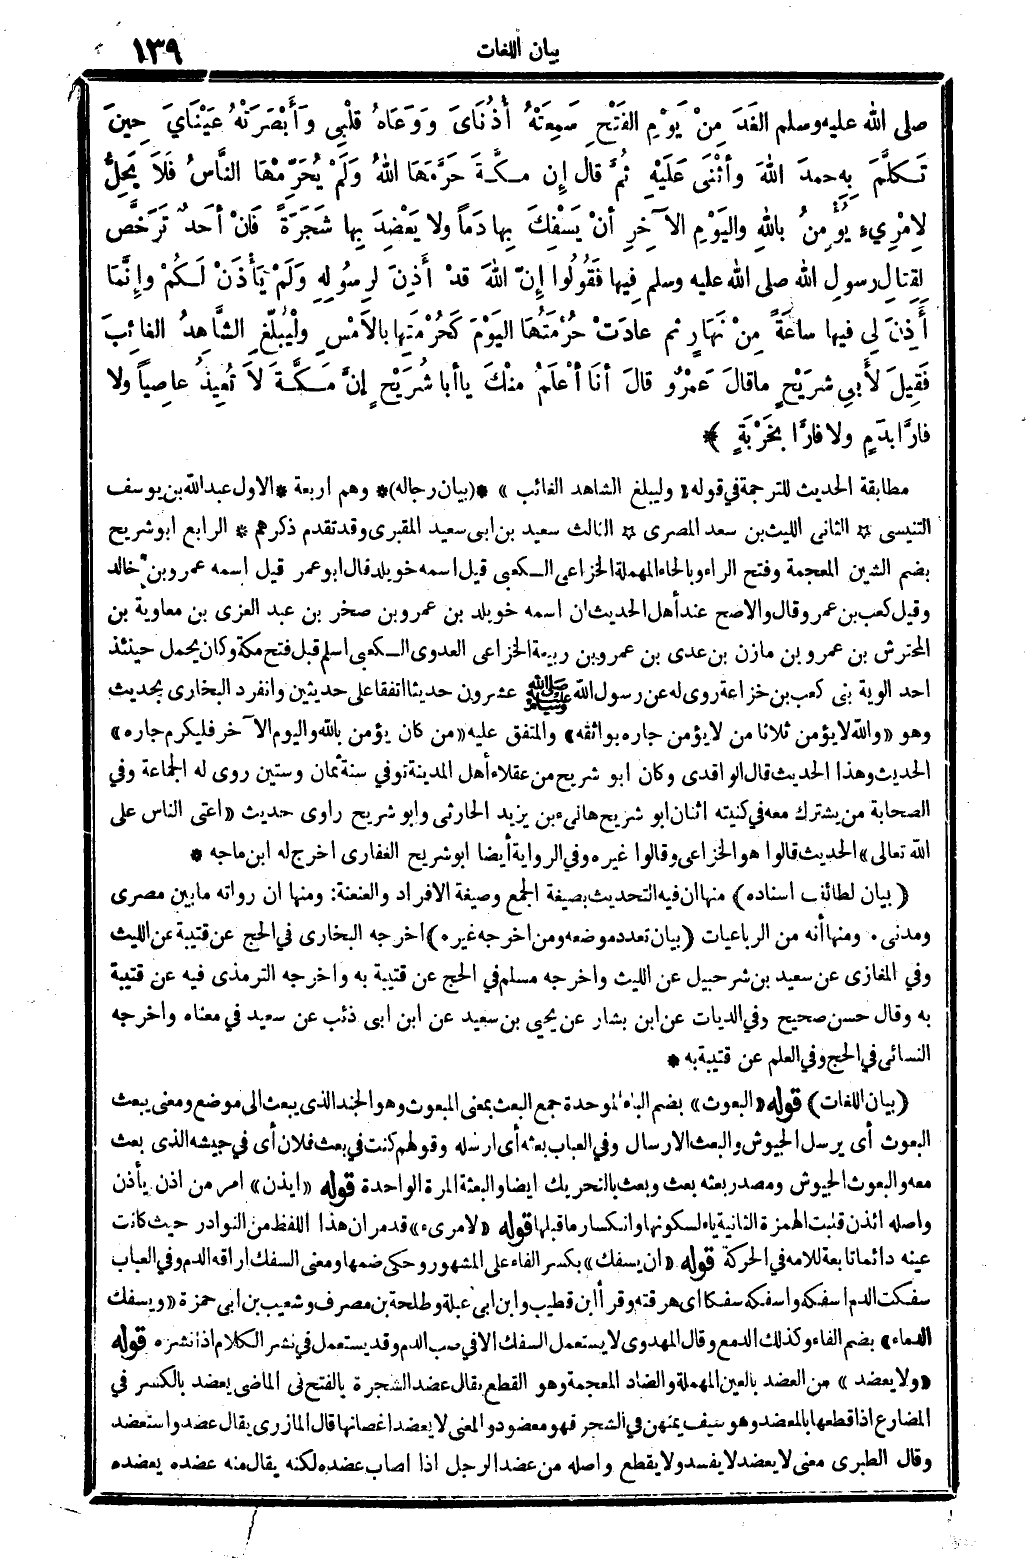 بيان اللغات ١٣٩
صلى الله عليه وسلم الغَدَ مِنْ يَوْمِ الفَتْحِ سَمِعَتْهُ أُذُنَايَ وَوَعَاهُ قَلْبِي وَأَبْصَرَتْهُ عَيْنَايَ حِينَ
تَكَلَّمَ بِهِ حمِدَ اللهَ وأثْنَى عَلَيْهِ ثُمَّ قال إن مكَّةَ حَرَّمَهَا اللهُ وَلَمْ يُحَرِّمْهَا النَّاسُ فَلَا يَحِلُّ
لِامْرِيءٍ يُؤْمِنُ باللهِ واليَوْمِ الآخِرِ أنْ يَسْفِكَ بِها دَماً ولا يَعْضِدَ بِها شَجَرَةً فَانْ أحَدٌ تَرَخَّصَ
لِقِتَالِ رسولِ الله صلى الله عليه وسلم فِيها فَقُولُوا إنّ اللهَ قدْ أَذِنَ لِرسُولِهِ وَلَمْ يَأْذَنْ لَكُمْ وإنَّمَا
أَذِنَ لِي فيها ساعَةً مِنْ نَهَارٍ ثم عادَتْ حُرْمَتُهَا اليَوْمَ كَحُرْمَتِها بالامْسِ ولْيُبلِّغِ الشَّاهِدُ الغائِبَ
فَقِيلَ لأَبِي شريْحٍ ماقالَ عَمْرٌو قالَ أنَا أعْلَمُ مِنْكَ ياأبا شُرَيْحٍ إنَّ مَكَّةَ لَا تُعِيذُ عاصِياً ولا
فارًّا بدَمٍ ولا فارًّا بخَرْبَةٍ ﴾ *
مطابقة الحديث للترجمة في قوله «وليبلغ الشاهد الغائب» *(بيان رجاله)* وهم اربعة * الاول عبد الله بن يوسف
التنيسى * الثانى الليث بن سعد المصرى * الثالث سعيد بن ابى سعيد المقبرى وقد تقدم ذكرهم * الرابع ابو شريح
بضم الشين المعجمة وفتح الراء وبالحاء المهملة الخزاعى الكعبى قيل اسمه خويلد قال ابو عمر قيل اسمه عمرو بن خالد
وقيل كعب بن عمرو قال والاصح عند أهل الحديث ان اسمه خويلد بن عمرو بن صخر بن عبد العزى بن معاوية بن
المحترش بن عمرو بن مازن بن عدى بن عمرو بن ربيعة الخزاعى العدوى الكعبى اسلم قبل فتح مكة وكان يحمل حينئذ
احد الوية بنى كعب بن خزاعة روى له عن رسول الله ﷺ عشرون حديثا اتفقا على حديثين وانفرد البخارى بحديث
وهو «والله لا يؤمن ثلاثا من لا يؤمن جاره بوائقه» والمتفق عليه «من كان يؤمن بالله واليوم الآخر فليكرم جاره»
الحديث وهذا الحديث قال الواقدى وكان ابو شريح من عقلاء أهل المدينة توفي سنة ثمان وستين روى له الجماعة وفي
الصحابة من يشترك معه في كنيته اثنان ابو شريح هانىء بن يزيد الحارثى وابو شريح راوى حديث «اعتى الناس على
الله تعالى» الحديث قالوا هو الخزاعى وقالوا غيره وفي الرواية أيضا ابو شريح الغفارى اخرج له ابن ماجه *
(بيان لطائف اسناده) منها ان فيه التحديث بصيغة الجمع وصيغة الافراد والعنعنة: ومنها ان رواته مابين مصرى
ومدنى . ومنها أنه من الرباعيات (بيان تعدد موضعه ومن اخرجه غيره) اخرجه البخارى في الحج عن قتيبة عن الليث
وفي المغازى عن سعيد بن شرحبيل عن الليث واخرجه مسلم في الحج عن قتيبة به واخرجه الترمذى فيه عن قتيبة
به وقال حسن صحيح وفي الديات عن ابن بشار عن يحيى بن سعيد عن ابن ابى ذئب عن سعيد في معناه واخرجه
النسائى في الحج وفي العلم عن قتيبة به *
(بيان اللغات) قوله «البعوث» بضم الباء الموحدة جمع البعث بمعنى المبعوث وهو الجند الذى يبعث الى موضع ومعنى يبعث
البعوث أى يرسل الجيوش والبعث الارسال وفي العباب بعثه أى ارسله وقولهم كنت في بعث فلان أى في جيشه الذى بعث
معه والبعوث الجيوش ومصدر بعثه بعث وبعث بالتحريك ايضا والبعثة المرة الواحدة قوله «ايذن» امر من اذن يأذن
واصله ائذن قلبت الهمزة الثانية ياء لسكونها وانكسار ماقبلها قوله «لامرىء» قد مر ان هذا اللفظ من النوادر حيث كانت
عينه دائما تابعة للامه في الحركة قوله «ان يسفك» بكسر الفاء على المشهور وحكى ضمها ومعنى السفك اراقه الدم وفي العباب
سفكت الدم اسفكه واسفكه سفكا اى هرقته وقرأ ابن قطيب وابن ابى عبلة وطلحة بن مصرف وشعيب بن ابى حمزة «ويسفك
الدماء» بضم الفاء وكذلك الدمع وقال المهدوى لا يستعمل السفك الا في صب الدم وقد يستعمل في نشر الكلام اذا نشره قوله
«ولا يعضد» من العضد بالعين المهملة والضاد المعجمة وهو القطع يقال عضد الشجرة بالفتح في الماضى يعضد بالكسر في
المضارع اذا قطعها بالمعضد وهو سيف يمتهن في الشجر فهو معضود والمعنى لا يعضد اغصانها قال المازرى يقال عضد واستعضد
وقال الطبرى معنى لا يعضد لا يفسد ولا يقطع واصله من عضد الرجل اذا اصاب عضده لكنه يقال منه عضده يعضده